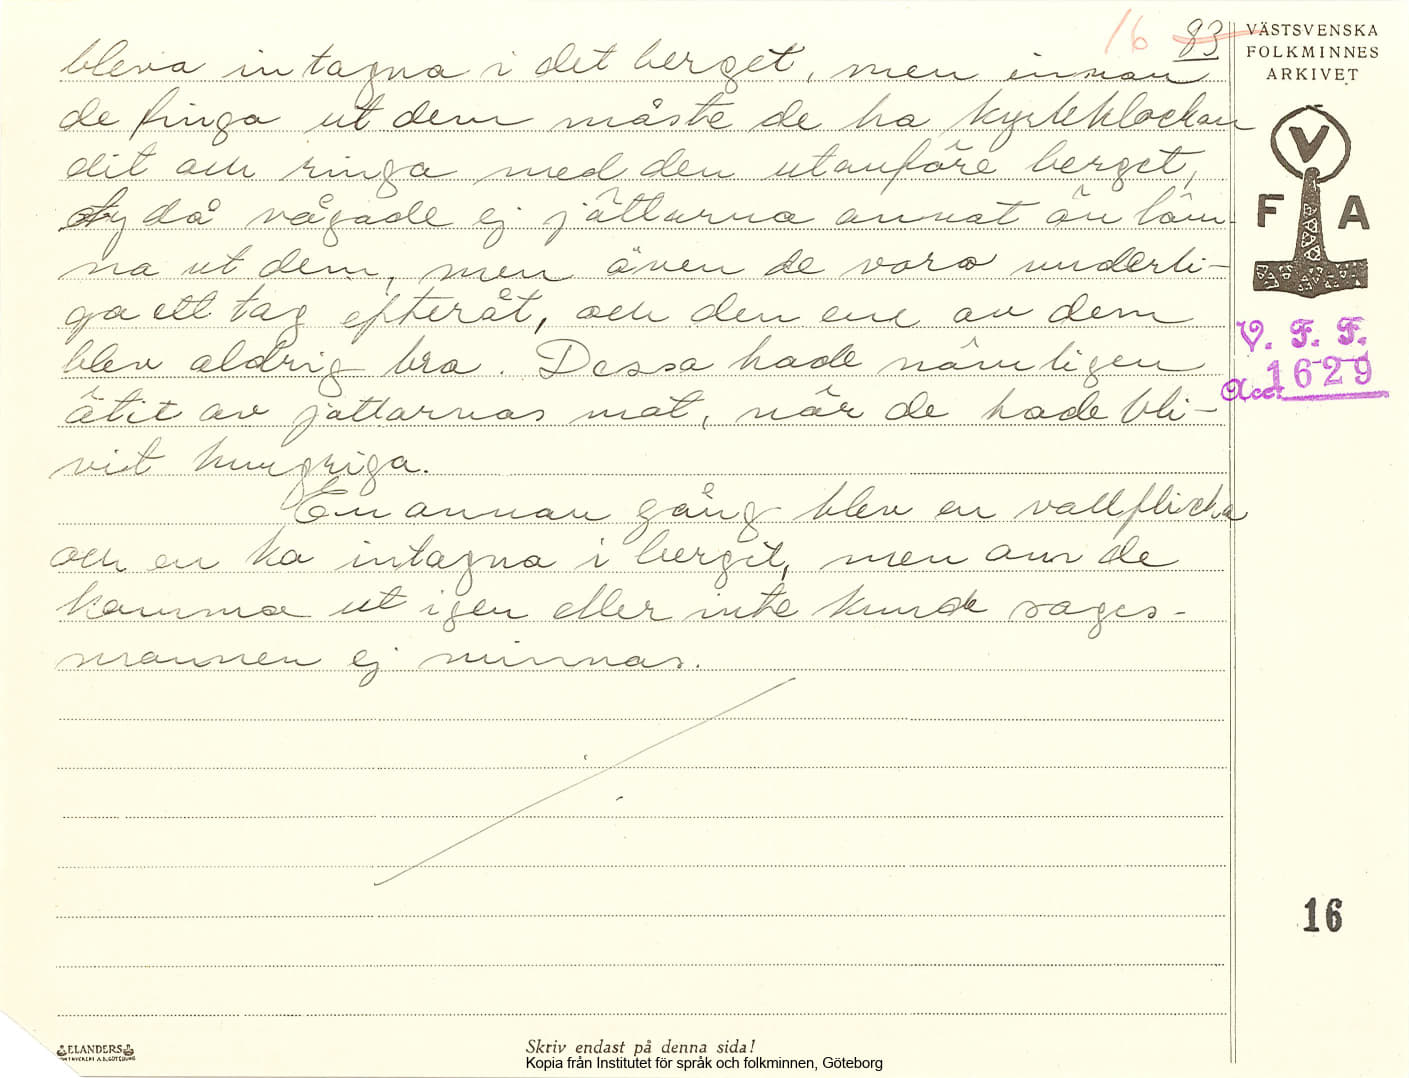 16 83
VÄSTSVENSKA
FOLKMINNES
ARKIVET
bleva intagna i det berget, men innan
de finga ut dem måste de ha kyrkklockan
dit och ringa med den utanföre berget,
ty då vågade ej jättarna annat än läm-
na ut dem, men även de voro underli-
ga ett tag efteråt, och den ene av dem
blev aldrig bra. Dessa hade nämligen
ätit av jättarnas mat, när de hade bli-
vit hungriga.
En annan gång blev en vallflicka
och en ko intagna i berget, men om de
kommo ut igen eller inte kunde sages-
mannen ej minnas.
V
F A
V. F. F.
Acc. 1629
16
ELANDERS
Skriv endast på denna sida!
Kopia från Institutet för språk och folkminnen, Göteborg